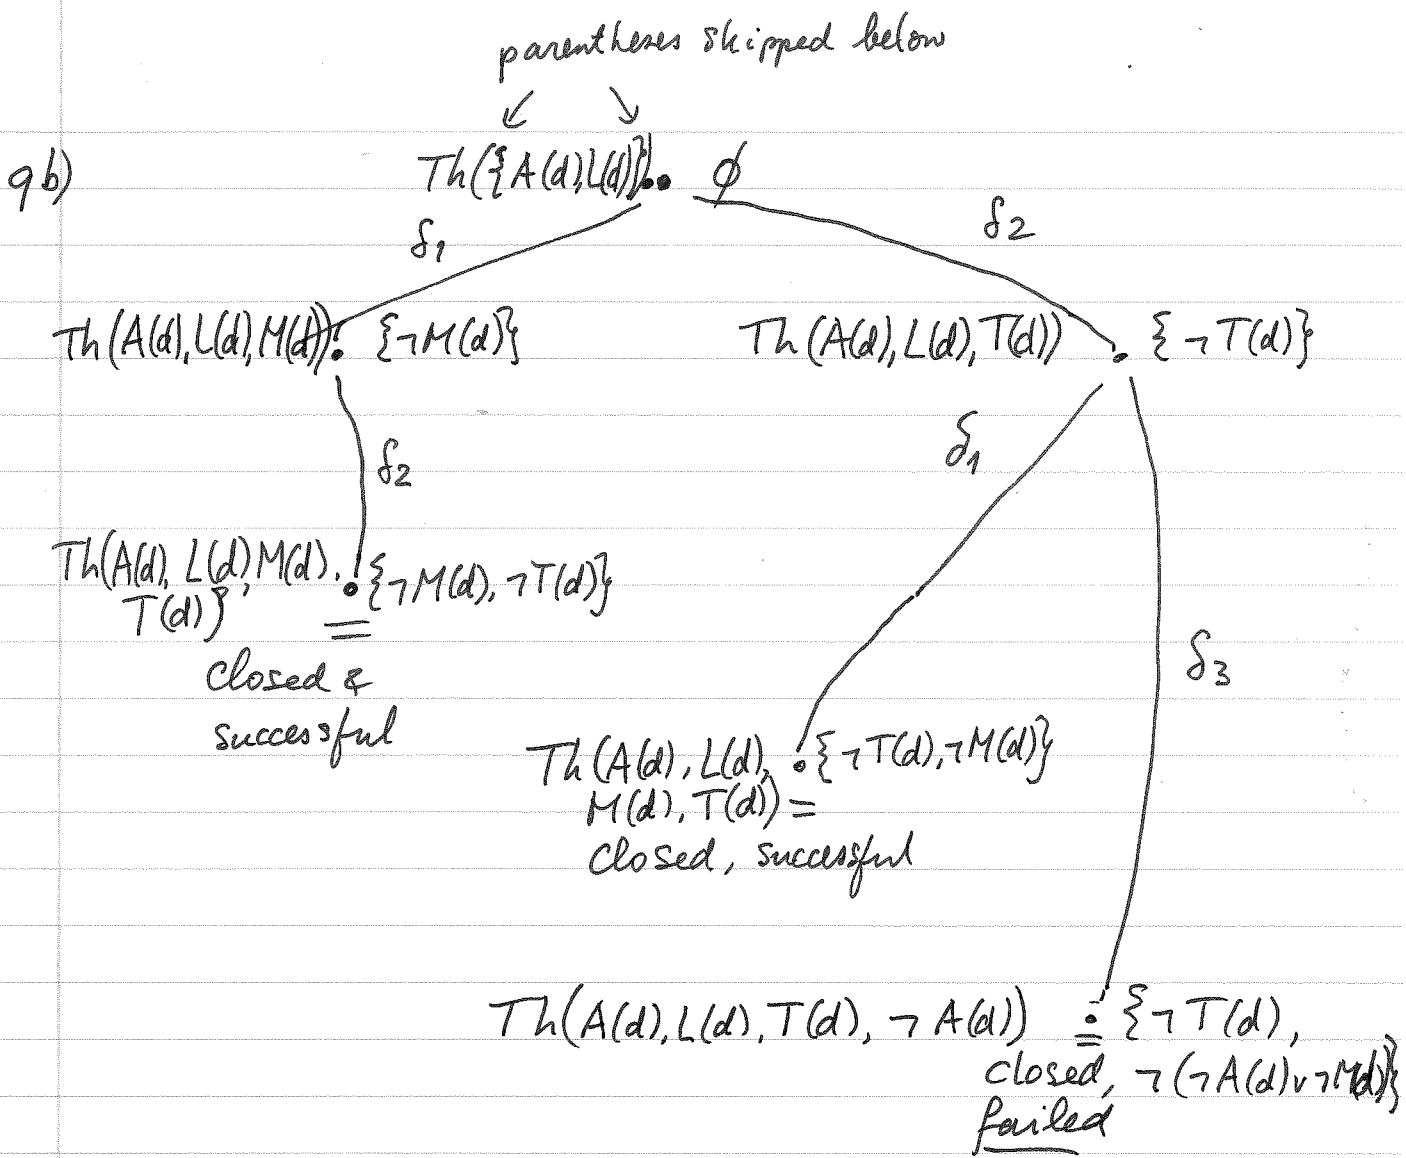 parentheses skipped below
↙ ↘
9b) Th({A(d),L(d)}) ∅
δ1 δ2
Th(A(d),L(d),M(d)) {¬M(d)} Th(A(d),L(d),T(d)) {¬T(d)}
δ2 δ1
Th(A(d), L(d), M(d), {¬M(d), ¬T(d)}
T(d))
closed &
successful
δ3
Th(A(d), L(d), {¬T(d), ¬M(d)}
M(d), T(d)) =
closed, successful
Th(A(d), L(d), T(d), ¬A(d)) {¬T(d),
closed, ¬(¬A(d)∨¬M(d))}
failed